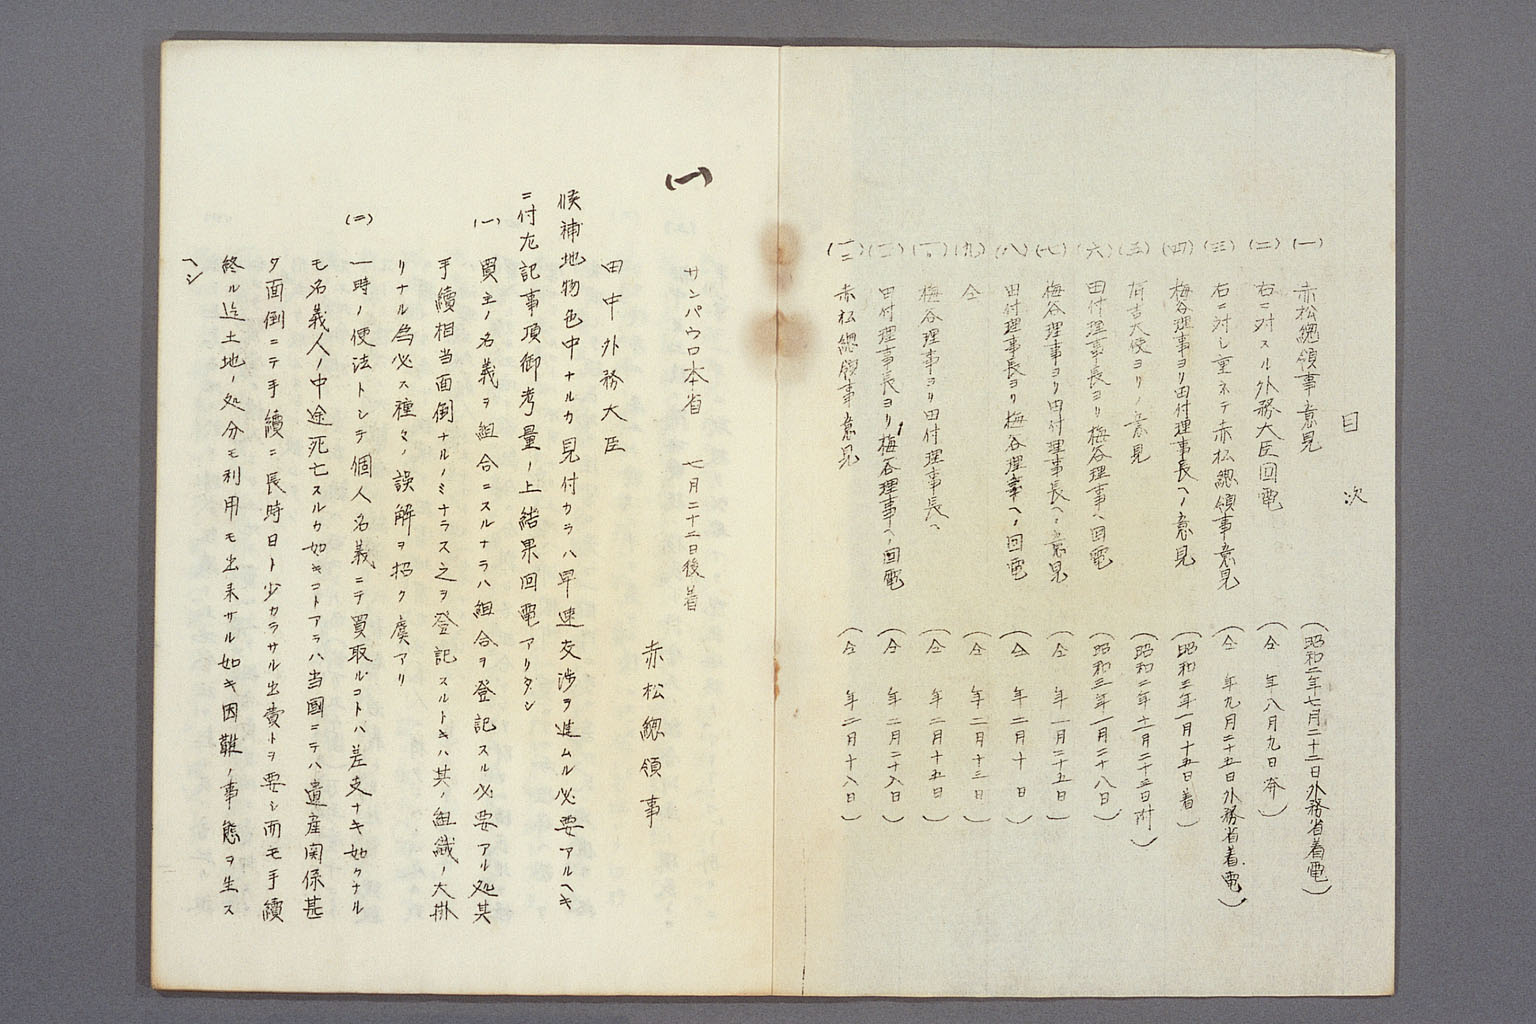 目次
(一) 赤松總領事意見 (昭和二年七月二十二日外務省着電)
(二) 右ニ対スル外務大臣回電 (仝 年八月九日奔)
(三) 右ニ対シ重ネテ赤松總領事意見 (仝 年九月二十五日外務省着電)
(四) 梅谷理事ヨリ田付理事長ヘノ意見 (昭和三年一月十五日着)
(五) 有吉大使ヨリノ意見 (昭和二年十二月二十三日附)
(六) 田付理事長ヨリ梅谷理事ヘ回電 (昭和三年一月二十八日)
(七) 梅谷理事ヨリ田付理事長ヘノ意見 (仝 年一月二十五日)
(八) 田付理事長ヨリ梅谷理事ヘノ回電 (仝 年二月十日)
(九) 仝 (仝 年二月十三日)
梅谷理事ヨリ田付理事長ヘ (仝 年二月十五日)
田付理事長ヨリ梅谷理事ヘノ回電 (仝 年二月二十八日)
赤松總領事意見 (仝 年二月十八日)
(一)
サンパウロ本省 七月二十二日後着
赤松總領事
田中外務大臣
候補地物色中ナルカ見付カラハ早速交渉ヲ進ムル必要アルヘキ
ニ付左記事項御考量ノ上結果回電アリタシ
(一) 買主ノ名義ヲ組合ニスルナラハ組合ヲ登記スル必要アル処其
手續相当面倒ナルノミナラス之ヲ登記スルトキハ其ノ組織ノ大掛
リナル為必ス種々ノ誤解ヲ招ク虞アリ
(二) 一時ノ便法トシテ個人名義ニテ買取ルコトハ差支ナキ如クナル
モ名義人ノ中途死亡スルカ如キコトアラハ当國ニテハ遺産関係甚
タ面倒ニテ手續ニ長時日ト少カラサル出費トヲ要シ而モ手續
終ル迄土地ノ処分モ利用モ出来サル如キ困難ノ事態ヲ生ス
ヘシ